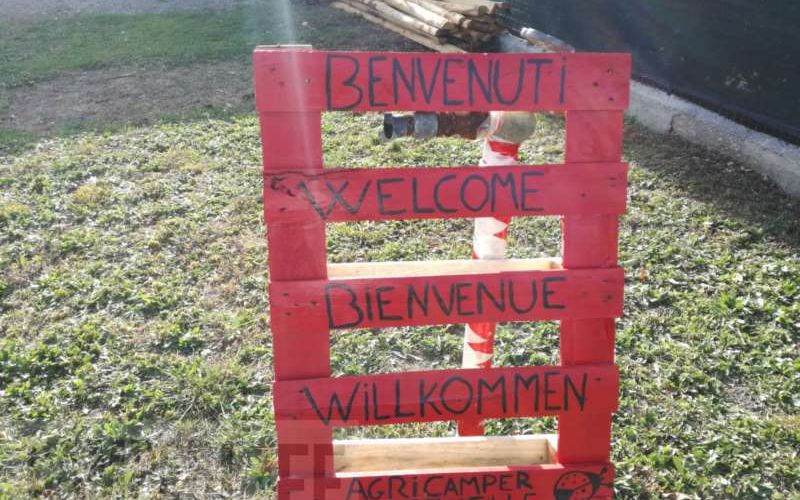 BENVENUTi
WELCOME
BIENVENUE
WiLLKOMMEN
AGRICAMPER